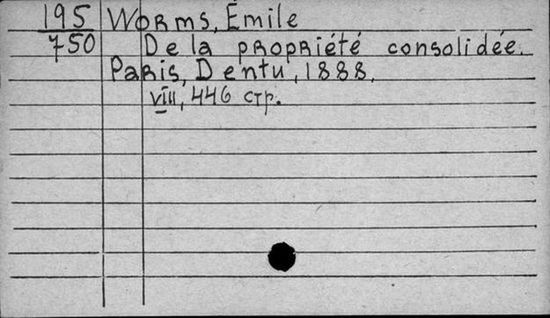 195 Worms, Émile
750 De la propriété consolidée.
Paris, Dentu, 1888.
VIII, 446 стр.